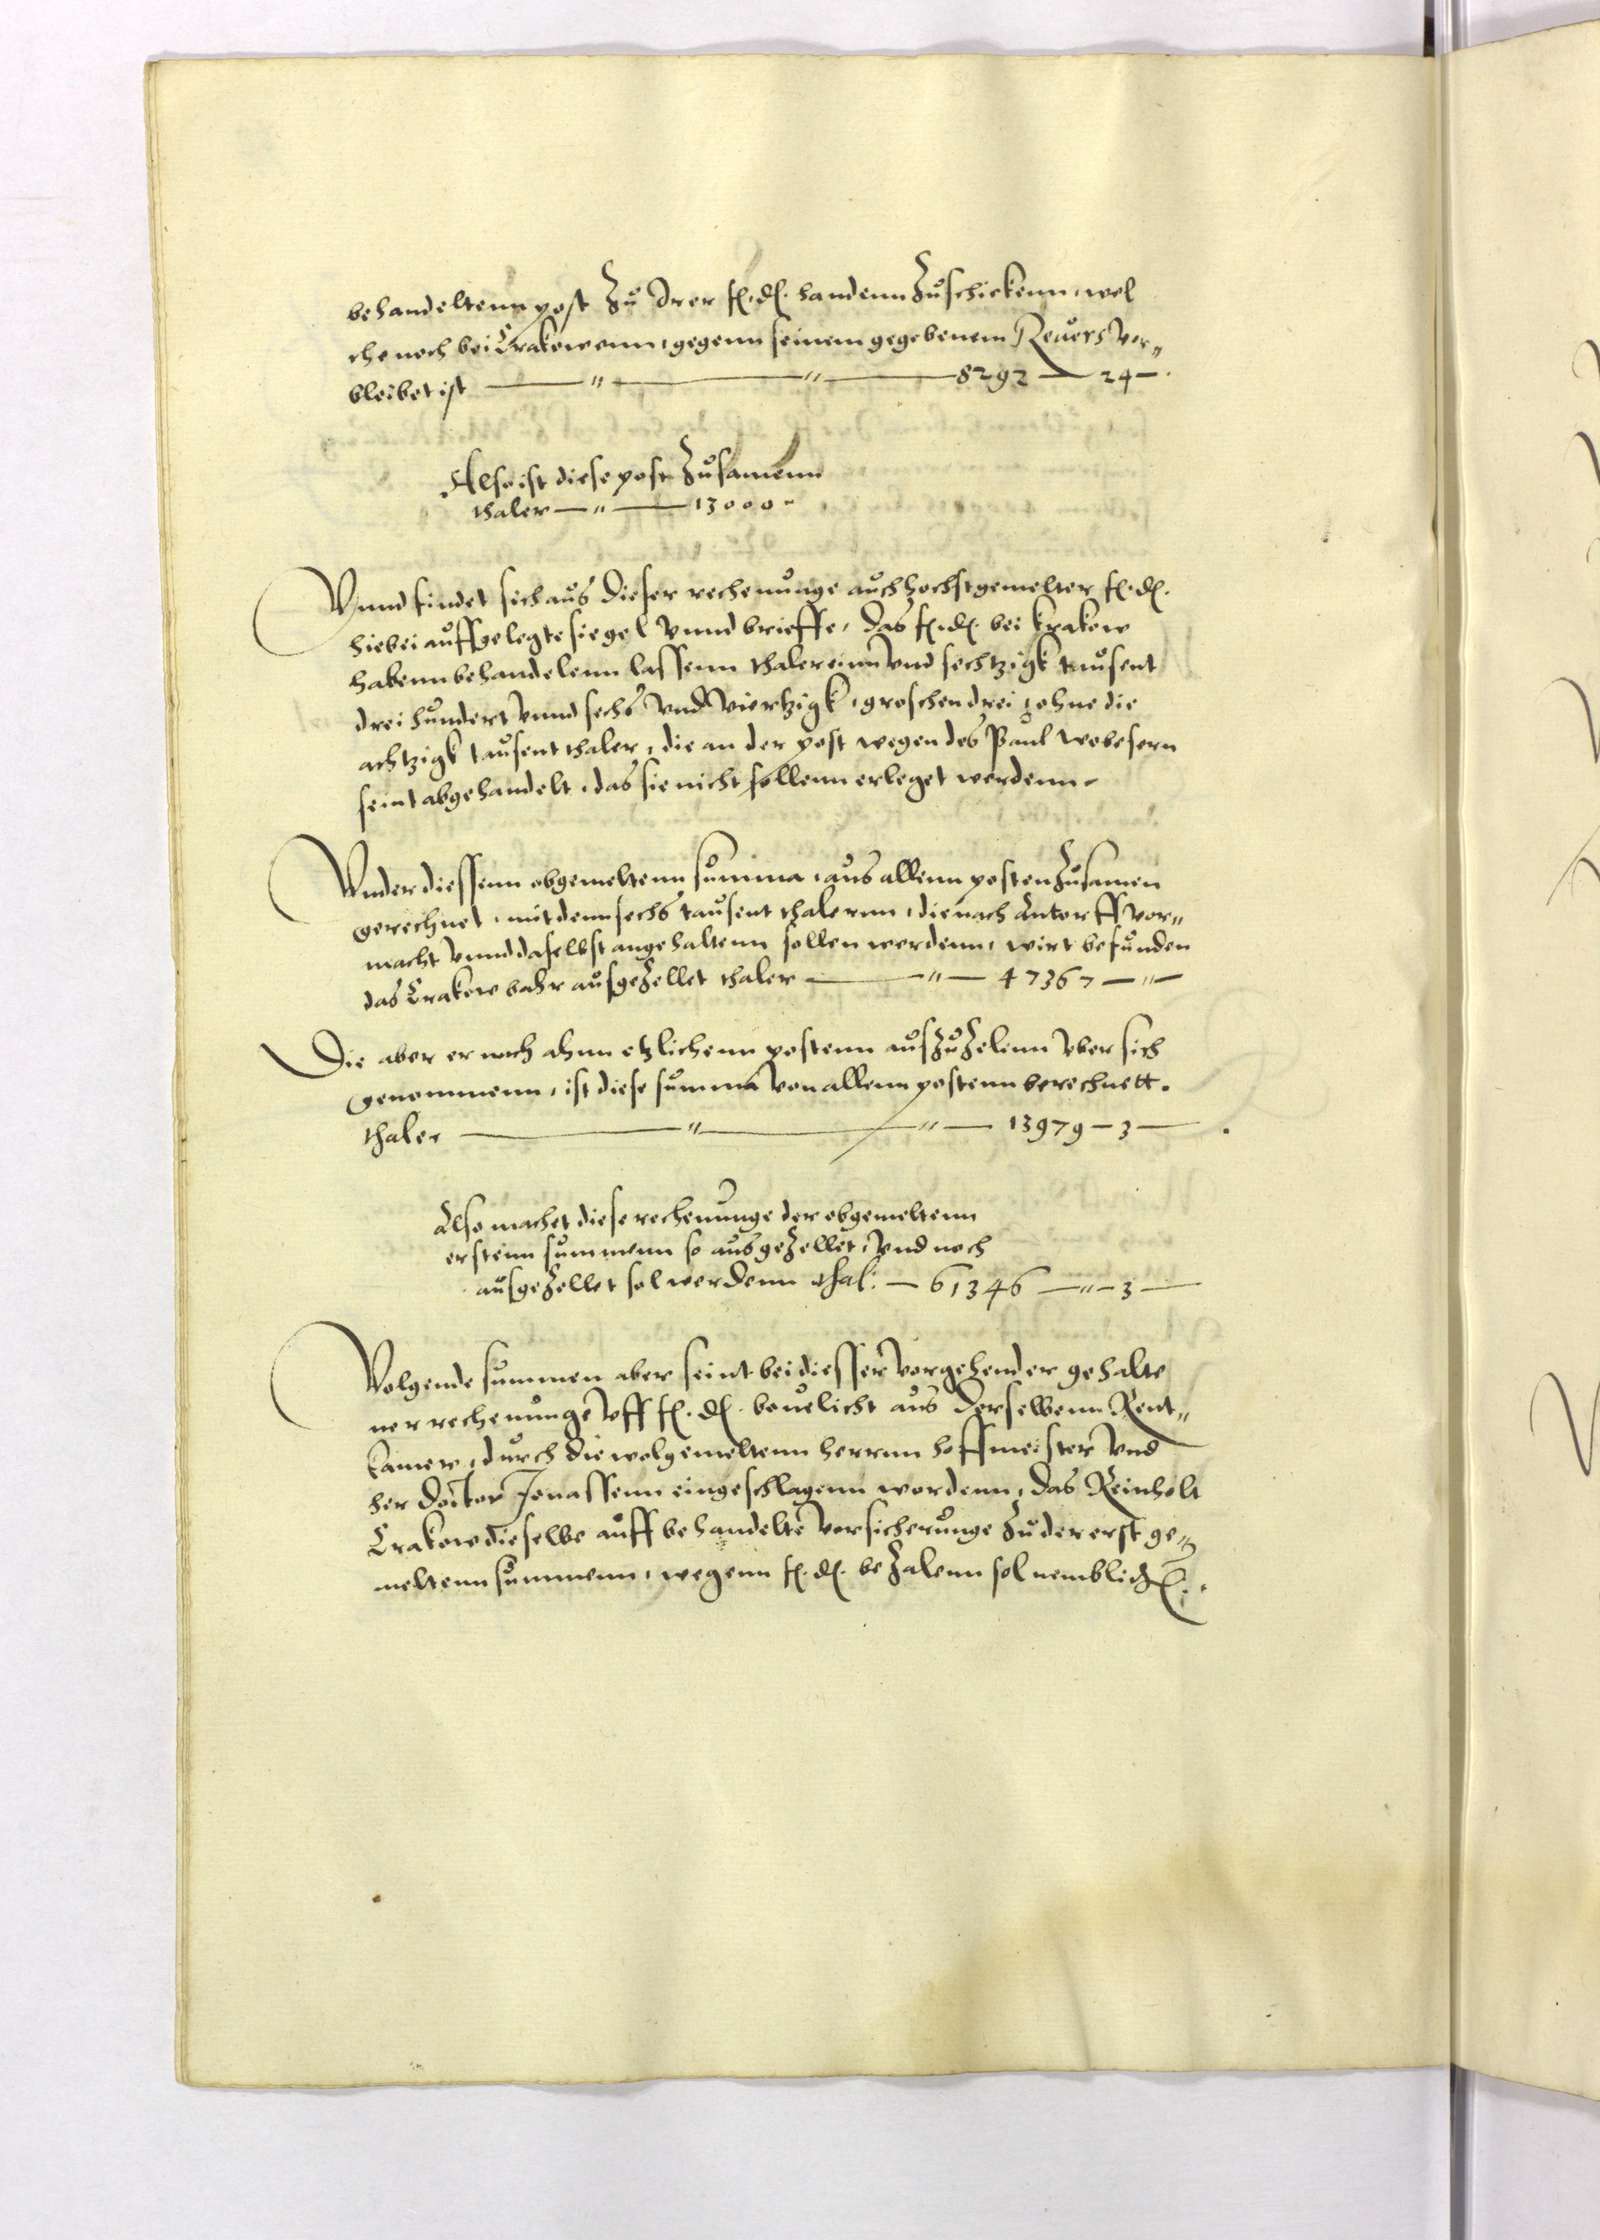 behandeltenn post Zu Irer f. d. handenn Zuschickenn, wel
che noch bei Crakowenn, gegenn seinem gegebenem Reuers vor„
bleibet ist — „ — „ — 8292 — 24 —
Also ist diese post Zusamenn
thaler — „ — 13000 -
Vnnd findet sich aus dieser rechenunge auch hochstgemelter f. d.
hiebei auffgelegte siegel vnnd brieffe, das f. d. bei krakow
habenn behandelenn lassenn thaler einn vnd sechtzigk tausent
drei hundert vnnd sechs vnd viertzigk, groschen drei, ohne die
achtzigk tausent thaler, die an der post wegen des Paul wobesern
seint abgehandelt, das sie nicht sollenn erleget werdenn.
Vnder diessenn obgemeltenn summa, aus allenn posten Zusamen
gerechnet, mit denn sechs tausent thalernn, die nach Antorff vor„
macht vnnd daselbst angehaltenn sollen werdenn, wirt befunden
das Crakow bahr ausgeZellet thaler — „ — 47367 — „ —
Die aber er noch ahnn etzlichenn postenn ausZuZelenn vber sich
genommenn, ist diese summa von allenn postenn berechnett.
thaler — „ — „ — 13979 — 3 —
Also machet diese rechenunge der obgemeltenn
erstenn summenn so ausgeZellet, vnd noch
ausgeZellet sol werdenn thal: — 61346 — „ — 3 —
Volgende summen aber seint bei diesser vorgehender gehalte
ner rechenunge vff f. d. beuelicht aus derselbenn Rent„
kamer, durch die wolgemeltenn herrnn hoffmeister vnd
her Doctor Jonassenn eingeschlagenn wordenn, das Reinholt
Crakow dieselbe auff behandelte vorsicherunge Zu der erst ge„
meltenn summenn, wegenn f. d. beZalenn sol nemblich.